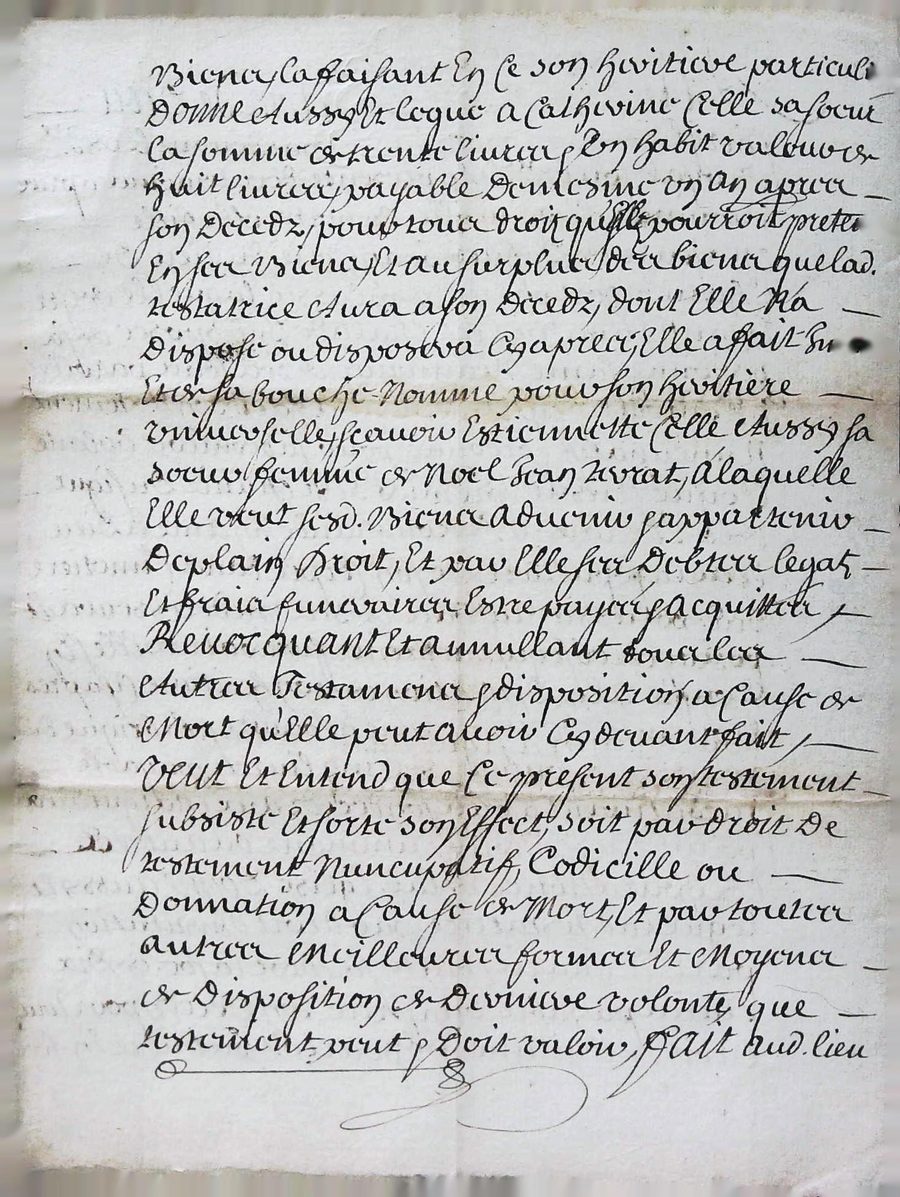 Biens, la faisant En Ce son heritiere particuli
Donne Aussy Et legue a Catherine Celle sa soeur
la somme de trente livres & Un habit valeur de
huit livres, payable De mesme un An apres
son Decedz, pour tous droitz qu'Elle pourroit preten
En ses Biens, Et au surplus des biens que lad.
testatrice Aura a son Decedz, dont Elle N'a
Disposé ou disposera Cy apres, Elle a fait In
Et de sa bouche Nommé pour son heritiere
universelle, scavoir Estiennette Celle Aussy sa
soeur femme de Noel Jean, A laquelle
Elle veut sesd. Biens advenir & appartenir
De plain Droit, Et par Elle ses Debtes legatz
Et fraix funeraires Estre payés & acquittés,
Revocquant Et annullant tous les
Autres Testamens & disposition a Cause de
Mort qu'Elle peut avoir Cy devant fait,
Veut Et Entend que Ce present son testement
subsiste Et sorte son Effect, soit par droit De
testement Nuncupatif, Codicille ou
Donnation a Cause de Mort, Et par toutes
autres Meilleures formes Et Moyens
de Disposition de Derniere volonté que
testement peut & Doit valoir, Fait aud. lieu